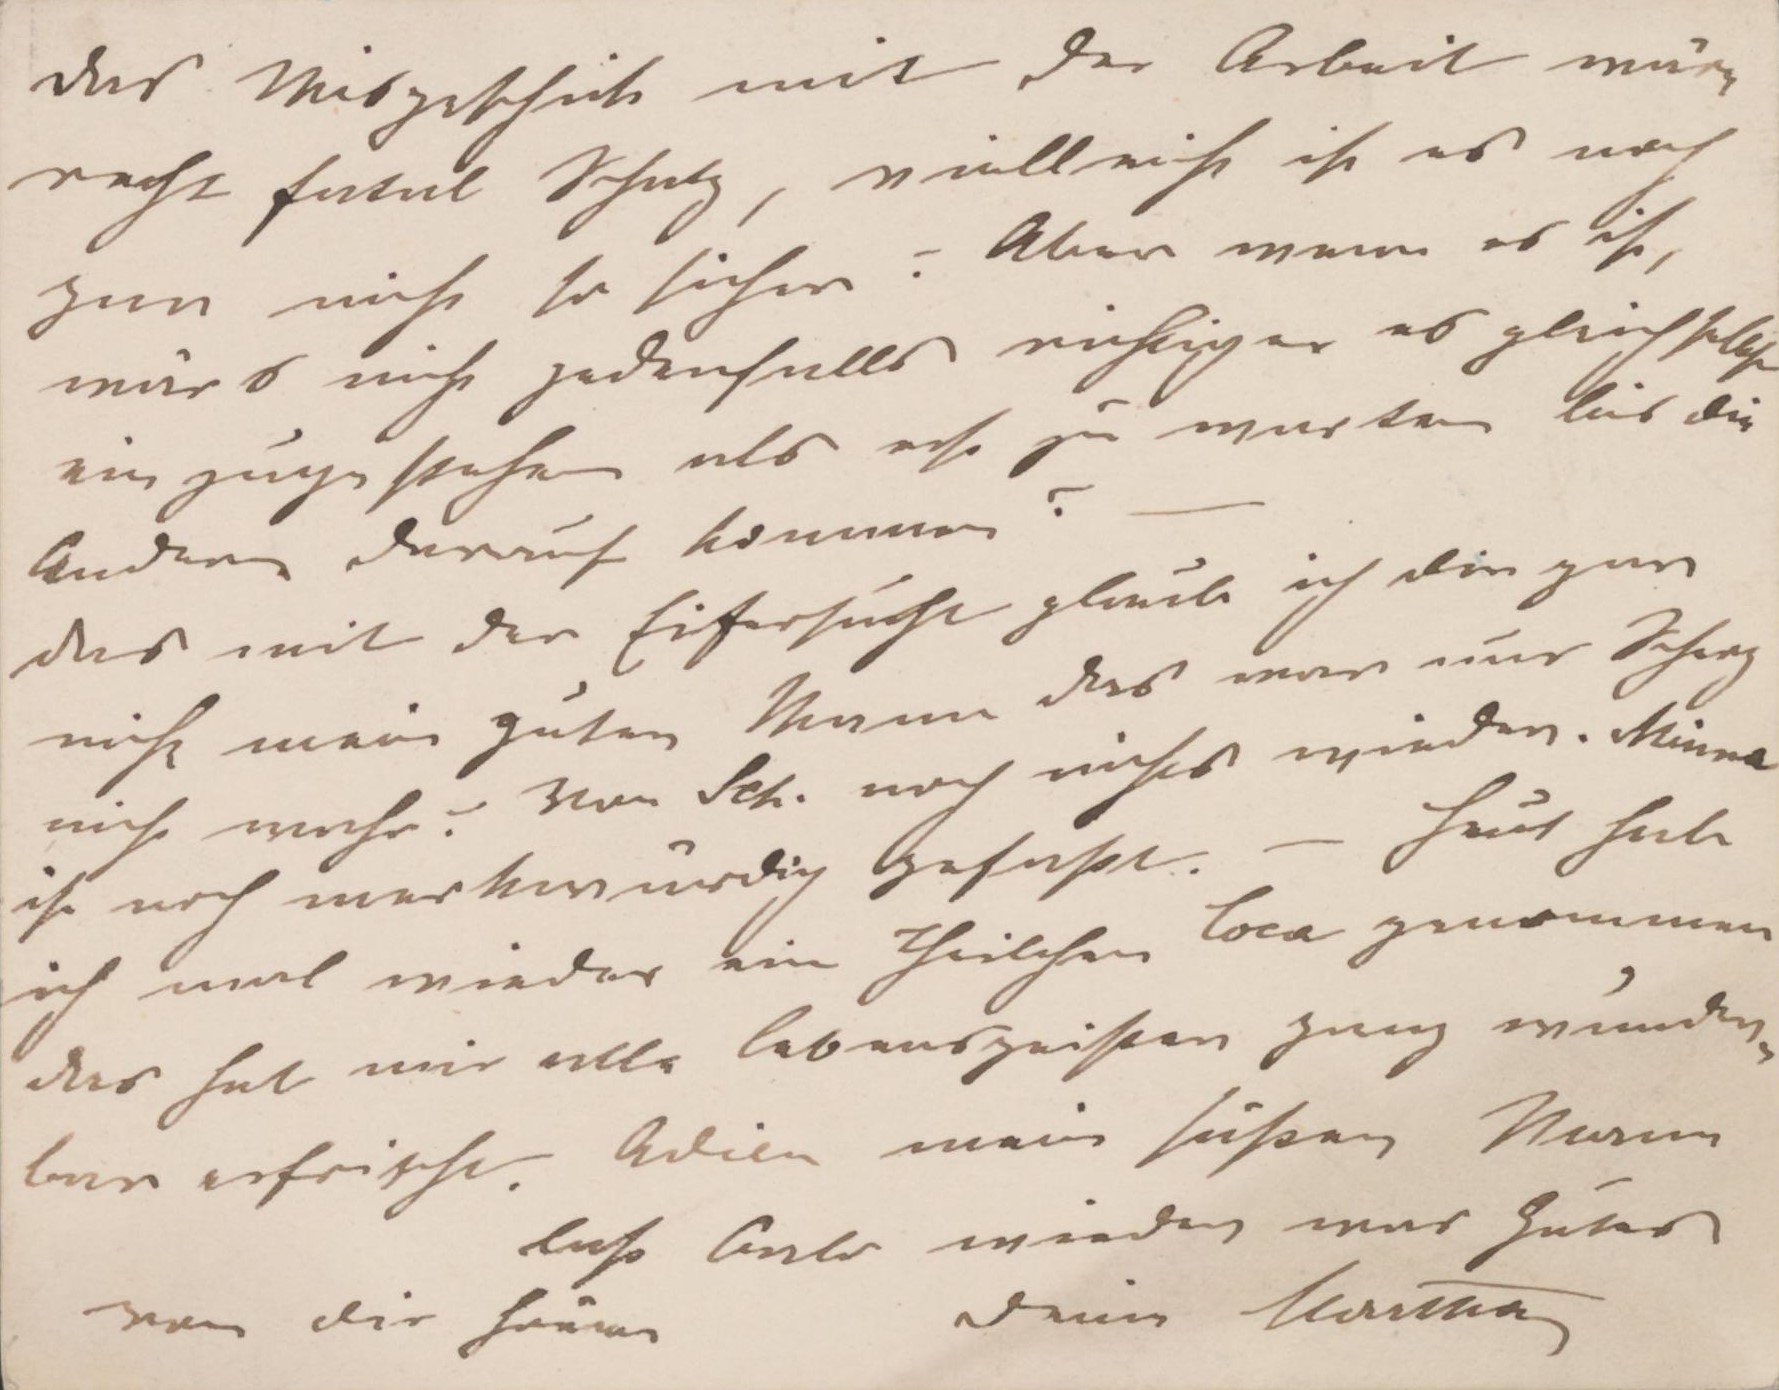 das Misgeschick mit der Arbeit wäre
recht fatal Schatz, vielleicht ist es noch
gar nicht so sicher? Aber wenn es ist,
wärs nicht jedenfalls richtiger es gleich selbst
einzugestehen als erst zu warten bis die
Andern darauf kommen? —
das mit der Eifersucht glaube ich dir gar
nicht mein guter Mann das war nur Scherz
nicht wahr? Von Sch. noch nichts wieder. Minna
ist noch merkwürdig gefaßt. — Heut habe
ich mal wieder ein Theilchen Coca genommen
das hat mir alle Lebensgeister ganz wunder-
bar erfrischt. Adieu mein süßer Mann
laß bald wieder was Gutes
von dir hören deine Martha